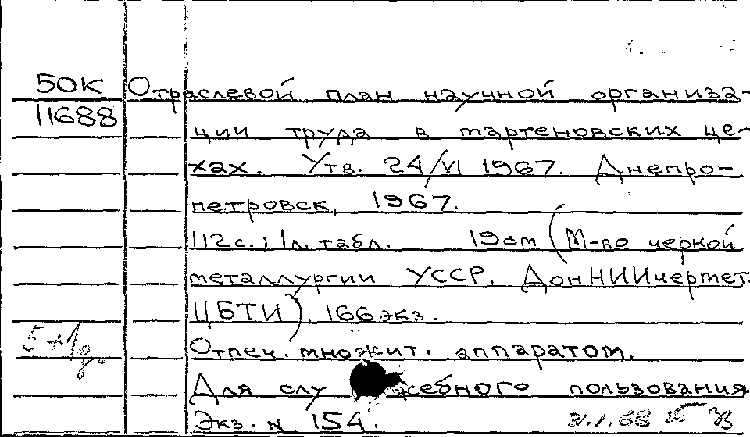 50К Отраслевой план научной организа-
11688 ции труда в мартеновских це-
хах. Утв. 24/VI 1967. Днепро-
петровск, 1967.
112с.; 1л. табл. 19см (М-во черной
металлургии УССР. ДонНИИчермет.
ЦБТИ). 166 экз.
Отпеч. множит. аппаратом.
Для служебного пользования
Экз. № 154.